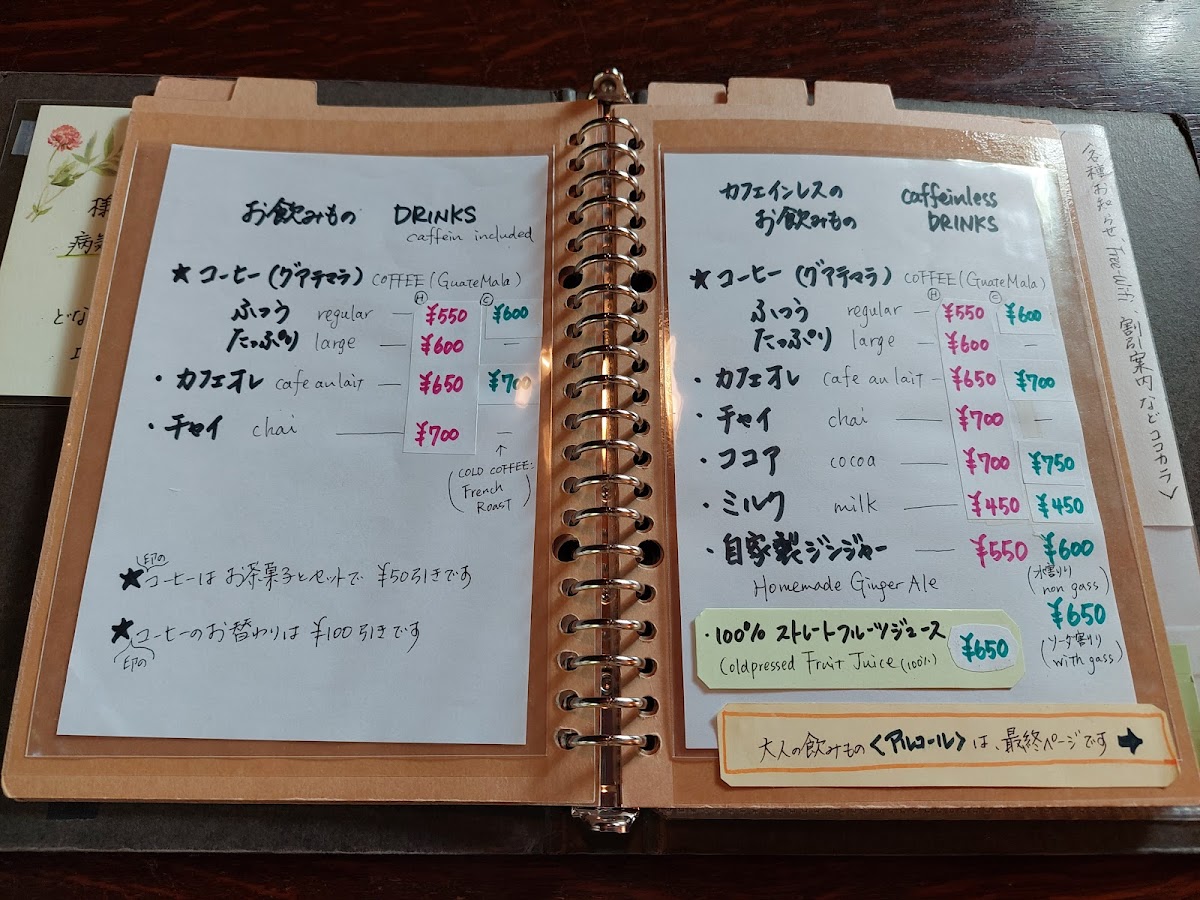 様
病気
どな
お飲みもの DRINKS
caffein included
★コーヒー(グアテマラ) COFFEE (GuateMala)
H C
ふつう regular — ¥550 ¥600
たっぷり large — ¥600 —
・カフェオレ cafe au lait — ¥650 ¥700
・チャイ chai — ¥700 —
↑
(COLD COFFEE:
French
Roast)
★印の
コーヒーはお茶菓子とセットで ¥50引きです
★コーヒーのお替わりは ¥100引きです
印の
カフェインレスの caffeinless
お飲みもの DRINKS
★コーヒー(グアテマラ) COFFEE (GuateMala)
H C
ふつう regular — ¥550 ¥600
たっぷり large — ¥600 —
・カフェオレ cafe au lait — ¥650 ¥700
・チャイ chai — ¥700 —
・ココア cocoa — ¥700 ¥750
・ミルク milk — ¥450 ¥450
・自家製ジンジャー — ¥550 ¥600
Homemade Ginger Ale (水割り
non gass)
¥650
(ソーダ割り
with gass)
・100% ストレートフルーツジュース ¥650
Coldpressed Fruit Juice (100%)
大人の飲みもの〈アルコール〉は、最終ページです →
〈各種お知らせ、Free WiFi、割引案内などココカラ〉